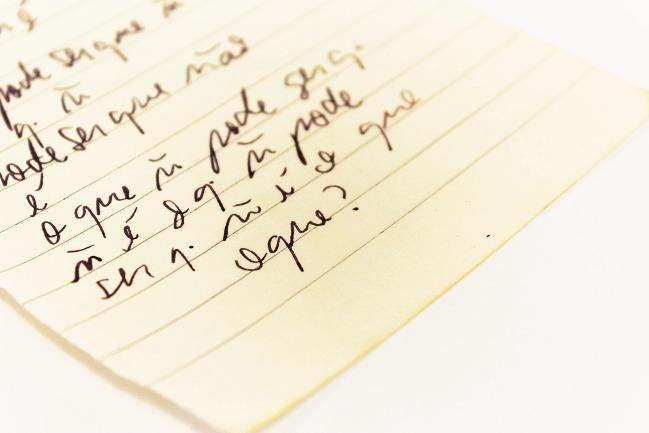 é
pode ser que ñ
q. ñ
pode ser que não
é
o que ñ pode ser q.
ñ é o q. ñ pode
ser q. ñ é o que
o que?